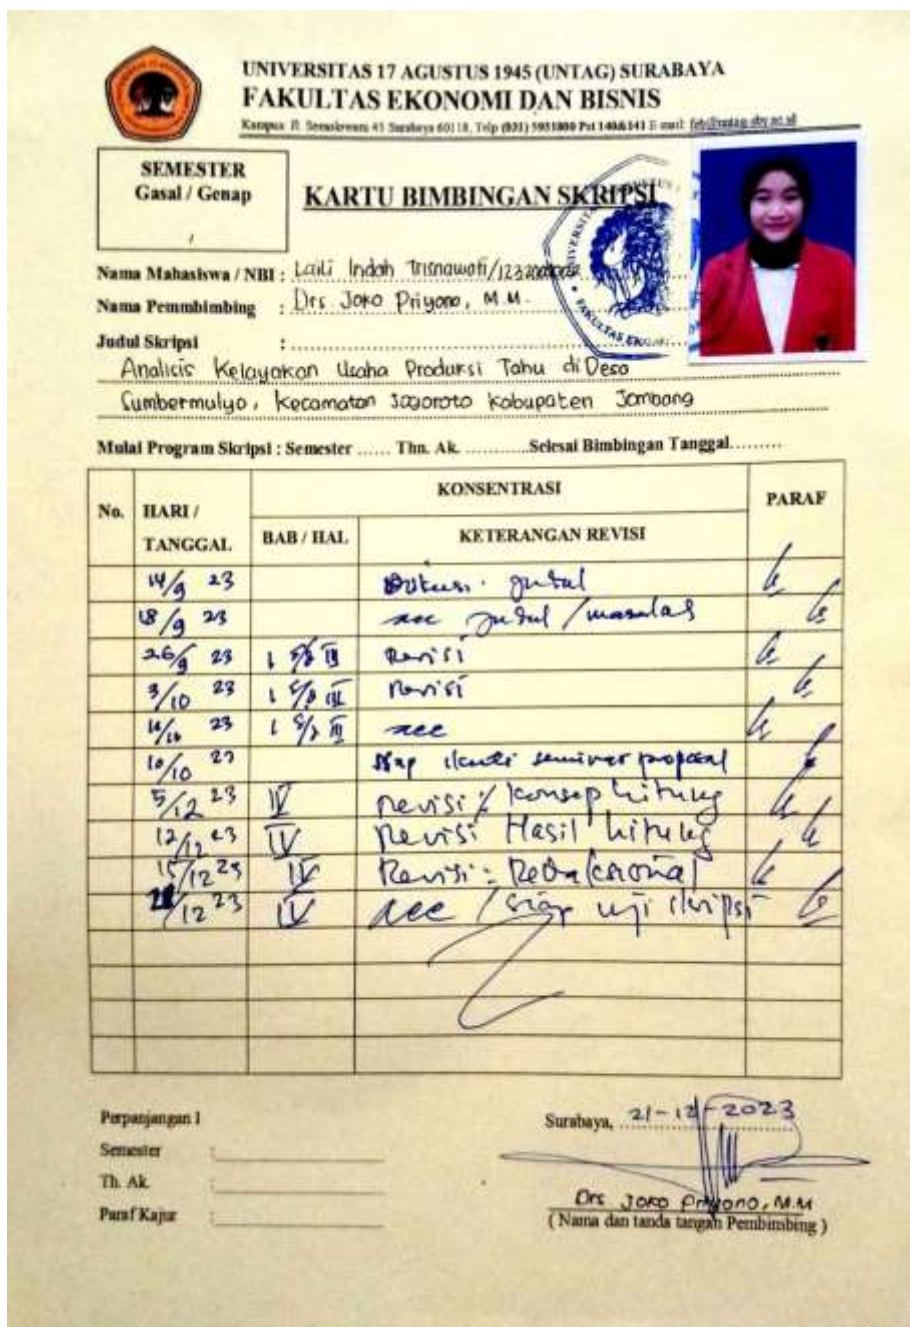 UNIVERSITAS 17 AGUSTUS 1945 (UNTAG) SURABAYA
FAKULTAS EKONOMI DAN BISNIS
Kampus Jl. Semolowaru 45 Surabaya 60118, Telp (031) 5931800 Pst 140&141 E-mail: feb@untag-sby.ac.id
SEMESTER
Gasal / Genap
/
KARTU BIMBINGAN SKRIPSI
Nama Mahasiswa / NBI : Laili Indah Trisnawati/
Nama Pemmbimbing : Drs Joko Priyono, M.M.
Judul Skripsi :
Analisis Kelayakan Usaha Produksi Tahu di Desa
Sumbermulyo, Kecamatan Jogoroto Kabupaten Jombang
Mulai Program Skripsi : Semester ...... Thn. Ak. ............Selesai Bimbingan Tanggal.........
No. HARI / TANGGAL KONSENTRASI PARAF
BAB / HAL KETERANGAN REVISI
14/9 23 Diskusi judul
18/9 23 acc judul / masalah
26/9 23 I s/d III Revisi
3/10 23 I s/d III Revisi
23 I s/d III acc
10/10 23 Siap ikuti seminar proposal
5/12 23 IV Revisi konsep hitung
12/12 23 IV Revisi Hasil hitung
15/12 23 IV Revisi:
21/12 23 IV acc / siap uji skripsi
Perpanjangan I
Semester :
Th. Ak. :
Paraf Kajur :
Surabaya, 21-12-2023
Drs Joko Priyono, M.M
( Nama dan tanda tangan Pembimbing )